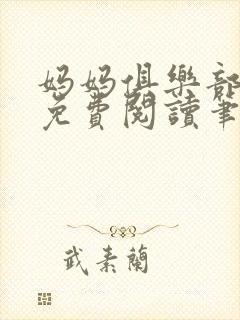 媽媽俱樂部
免費閱讀筆
武素蘭